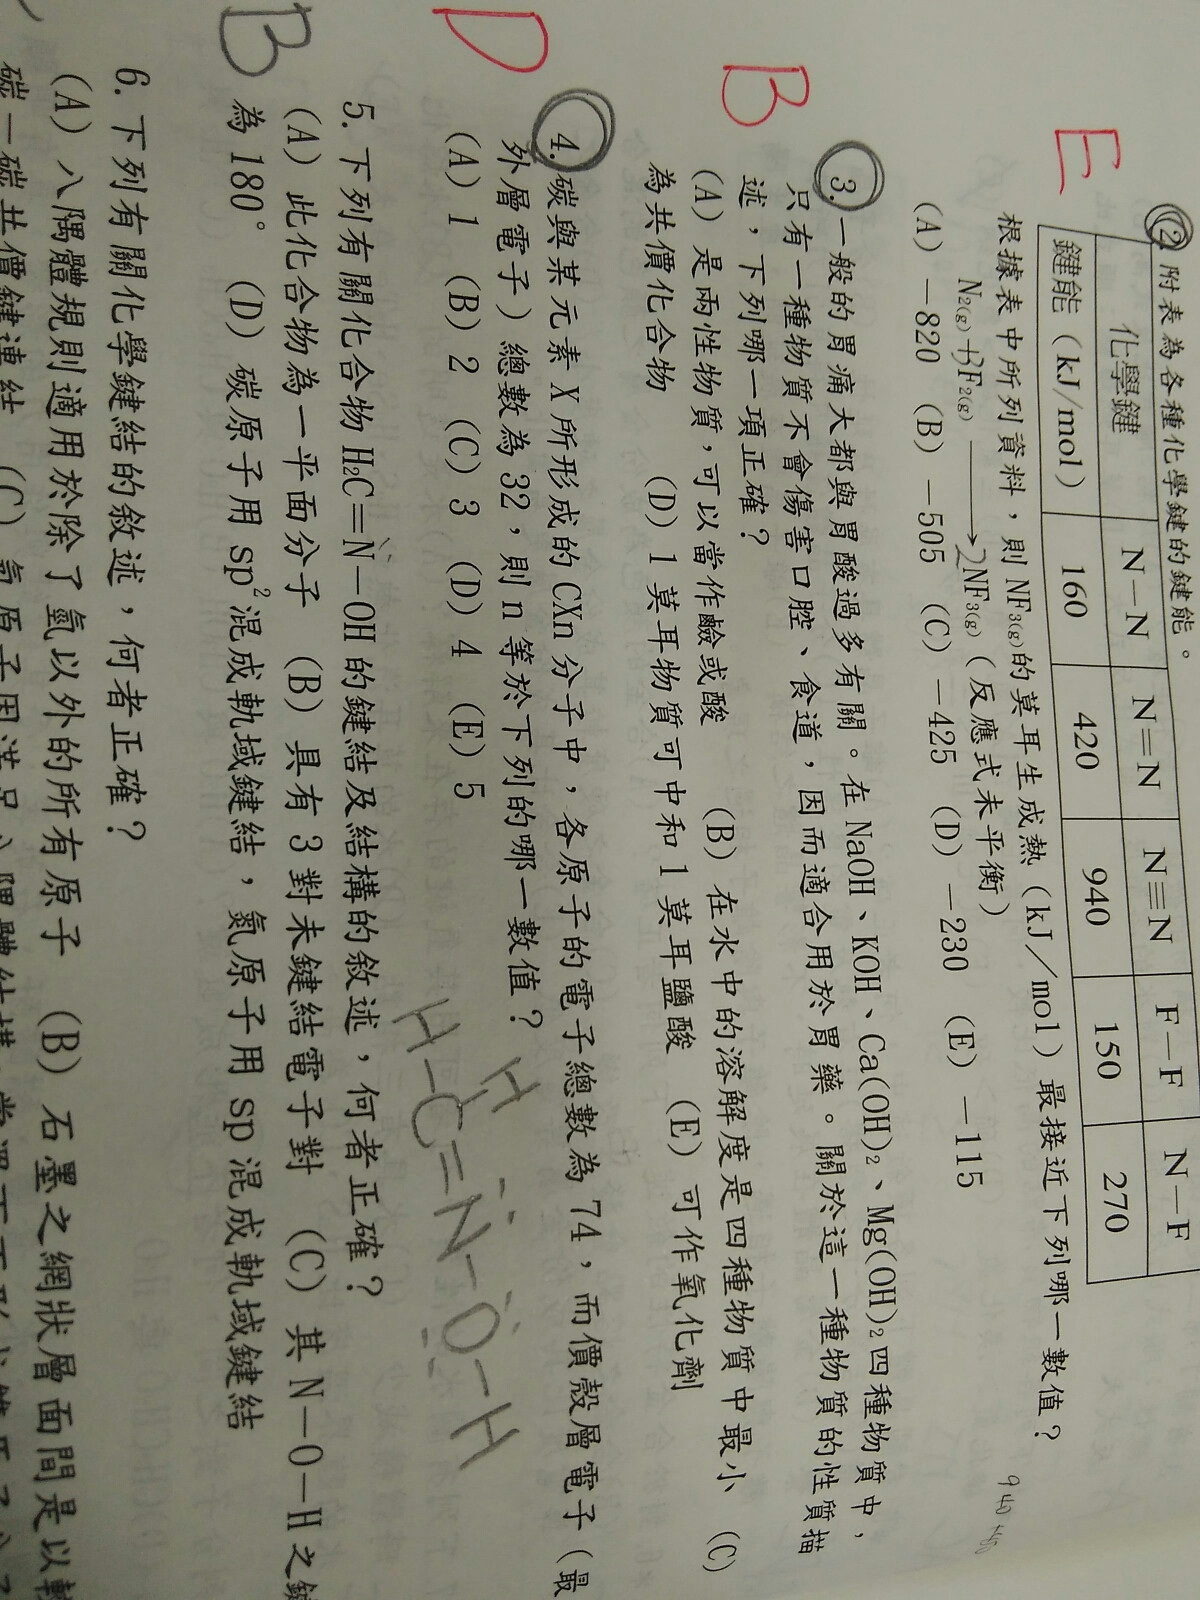 E
2. 附表為各種化學鍵的鍵能。
化學鍵 N－N N＝N N≡N F－F N－F
鍵能（kJ/mol） 160 420 940 150 270
根據表中所列資料，則 NF3(g)的莫耳生成熱（kJ／mol）最接近下列哪一數值？
N2(g)＋3F2(g) ⟶ 2NF3(g)（反應式未平衡）
(A) －820 (B) －505 (C) －425 (D) －230 (E) －115
B
3. 一般的胃痛大都與胃酸過多有關。在 NaOH、KOH、Ca(OH)2、Mg(OH)2四種物質中，
只有一種物質不會傷害口腔、食道，因而適合用於胃藥。關於這一種物質的性質描
述，下列哪一項正確？
(A) 是兩性物質，可以當作鹼或酸 (B) 在水中的溶解度是四種物質中最小 (C)
為共價化合物 (D) 1 莫耳物質可中和 1 莫耳鹽酸 (E) 可作氧化劑
D
4. 碳與某元素 X 所形成的 CXn 分子中，各原子的電子總數為 74，而價殼層電子（最
外層電子）總數為 32，則 n 等於下列的哪一數值？
(A) 1 (B) 2 (C) 3 (D) 4 (E) 5
H
H－C＝N－O－H
B
5. 下列有關化合物 H2C＝N－OH 的鍵結及結構的敘述，何者正確？
(A) 此化合物為一平面分子 (B) 具有 3 對未鍵結電子對 (C) 其 N－O－H 之鍵
為 180° (D) 碳原子用 sp2 混成軌域鍵結，氮原子用 sp 混成軌域鍵結
6. 下列有關化學鍵結的敘述，何者正確？
(A) 八隅體規則適用於除了氫以外的所有原子 (B) 石墨之網狀層面間是以
碳－碳共價鍵連結 (C)